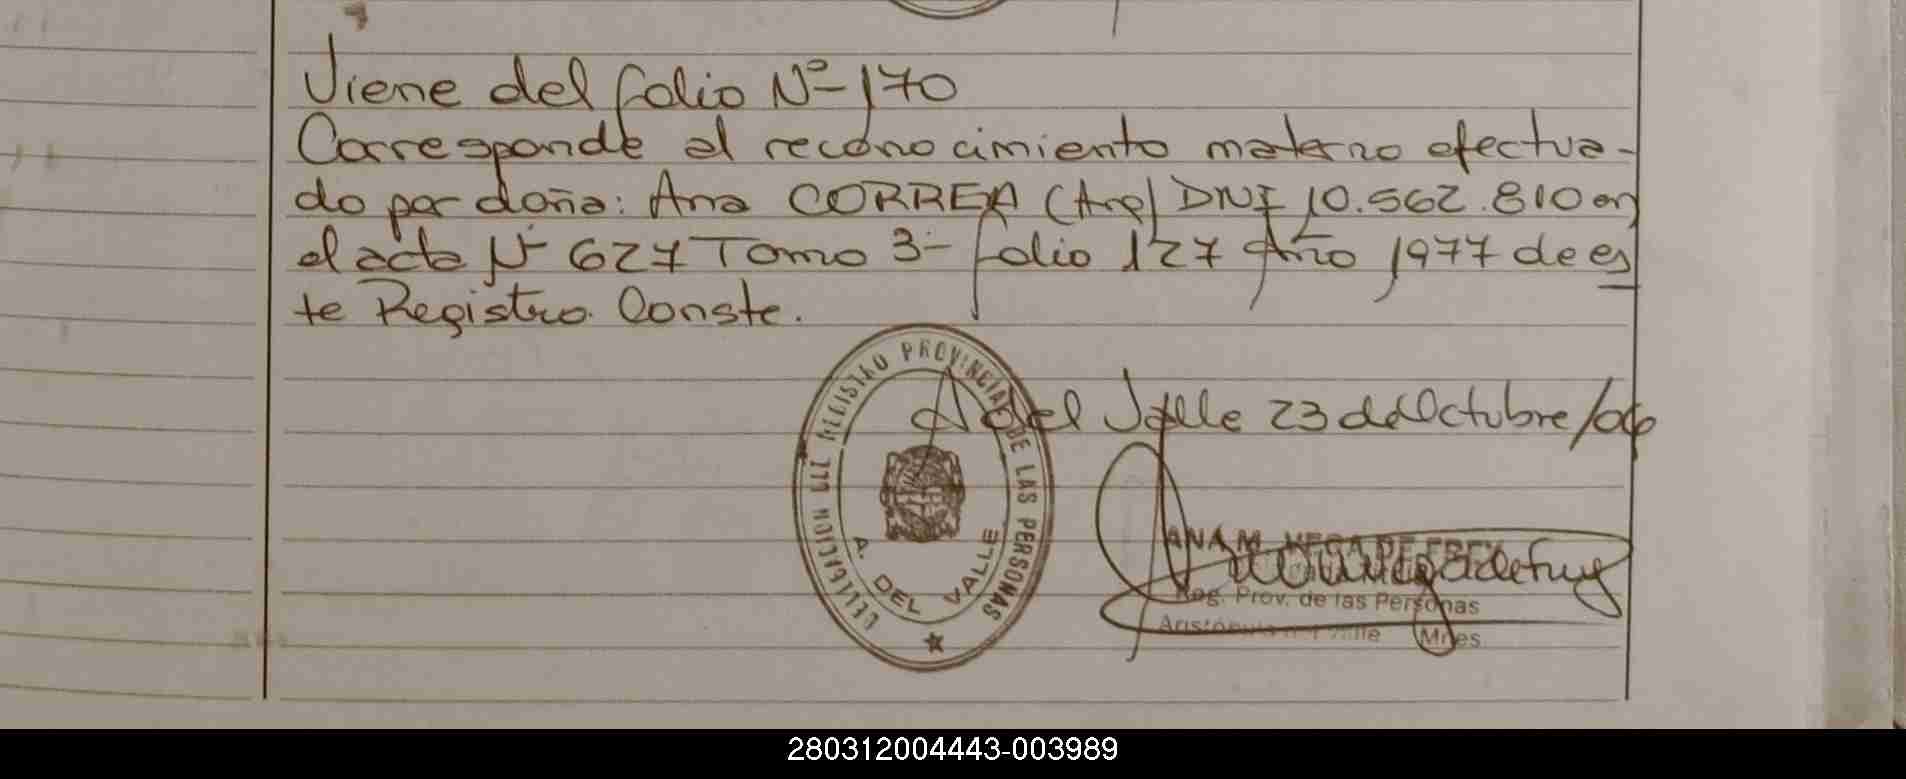 Viene del folio Nº 170
Corresponde al reconocimiento materno efectua-
do por doña: Ana CORREA (Arg) DNI 10.562.810 en
el acta Nº 627 Tomo 3º- folio 127 Año 1977 de es
te Registro. Conste.
A del Valle 23 de Octubre/06
REGISTRO PROVINCIAL DE LAS PERSONAS
A. DEL VALLE
ANA M.
Reg. Prov. de las Personas
Valle Mnes.
280312004443-003989